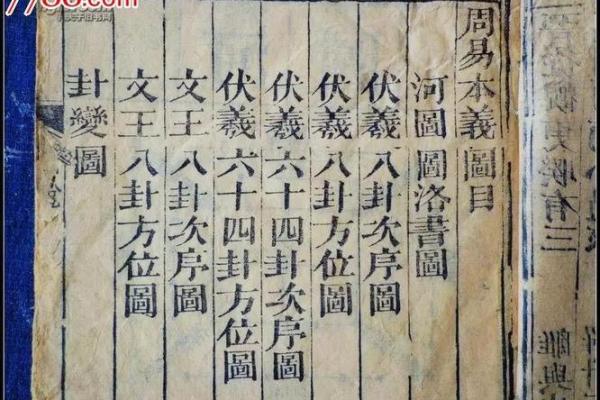 周易本義圖目
河圖 洛書圖
伏羲八卦次序圖
伏羲八卦方位圖
伏羲六十四卦次序圖
伏羲六十四卦方位圖
文王八卦次序圖
文王八卦方位圖
卦變圖